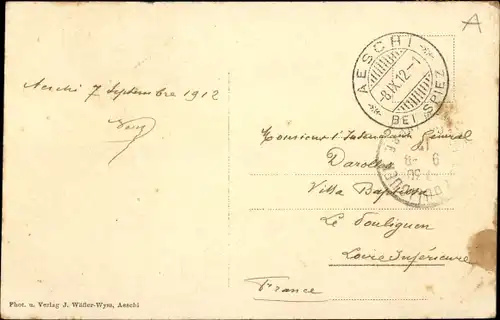 A
AESCHI
-8.IX.12-1
BEI SPIEZ
Aeschi 7 Septembre 1912
Monsieur l'Intendant Général
Villa
Le Pouliguen
Loire Inférieure
France
Phot. u. Verlag J. Wäfler-Wyss, Aeschi